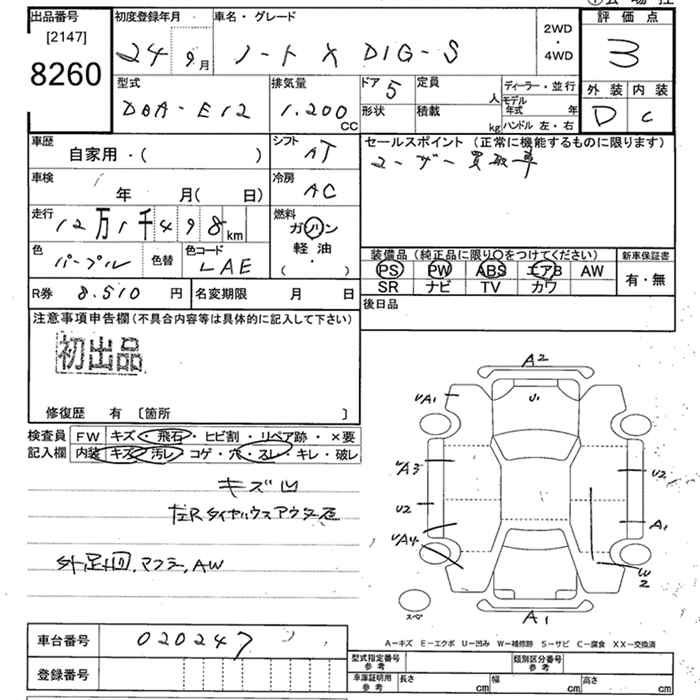 出品番号
[2147]
8260
初度登録年月
24 9月
車名・グレード
ノート X DIG-S
2WD
・
4WD
評価点
3
外装 内装
D C
型式
DBA-E12
排気量
1.200cc
ドア 5
定員 人
形状
積載 kg
ディーラー・並行
モデル年式 年
ハンドル 左・右
車歴
自家用・( )
シフト
AT
セールスポイント (正常に機能するものに限ります)
ユーザー買取車
車検
年 月( 日)
冷房
AC
走行
12万1千498km
燃料
ガソリン
軽油
・
( )
色
パープル
色替
色コード
LAE
装備品(純正品に限り○をつけてください)
PS PW ABS エアB AW
SR ナビ TV カワ
新車保証書
有・無
R券 8.510 円
名変期限 月 日
後日品
注意事項申告欄(不具合内容等は具体的に記入して下さい)
初出品
修復歴 有 〔箇所 〕
検査員
記入欄
FW キズ・飛石・ヒビ割・リペア跡・×要
内装 キズ・汚レ・コゲ・穴・スレ・キレ・破レ
キズ凹
左Rタイヤハウスアウター歪
外足回, マフラー, AW
A2
U1
A1
A3
U2
U2
A1
A4
W2
スペア
A1
A-キズ E-エクボ U-凹み W-補修跡 S-サビ C-腐食 XX-交換済
車台番号
020247
登録番号
型式指定番号
参考
類別区分番号
参考
車庫証明用
参考
長さ cm
幅 cm
高さ cm